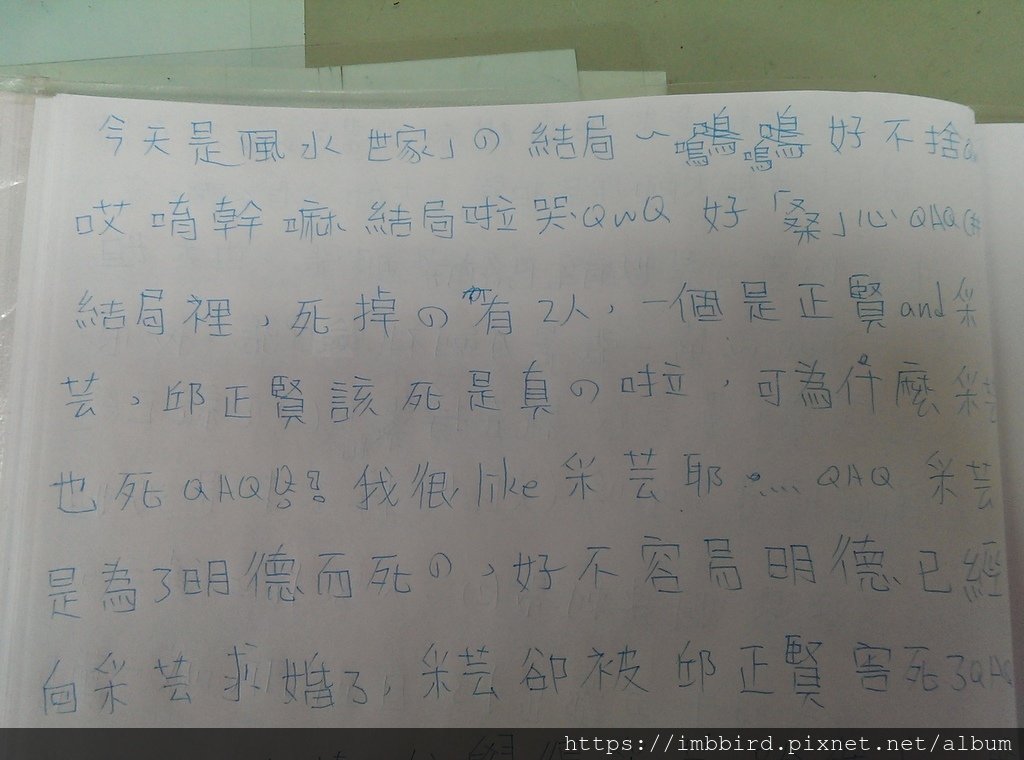 今天是「風水世家」の結局～嗚嗚嗚嗚好不捨
哎唷幹嘛結局啦哭QwQ 好「桑」心QAQ(#
結局裡，死掉の有2人，一個是正賢and采
芸，邱正賢該死是真の啦，可為什麼采芸
也死QAQ 我很like采芸耶……QAQ 采芸
是為了明德而死の，好不容易明德已經
向采芸求婚了，采芸卻被邱正賢害死了QAQ
https://imbbird.pixnet.net/album